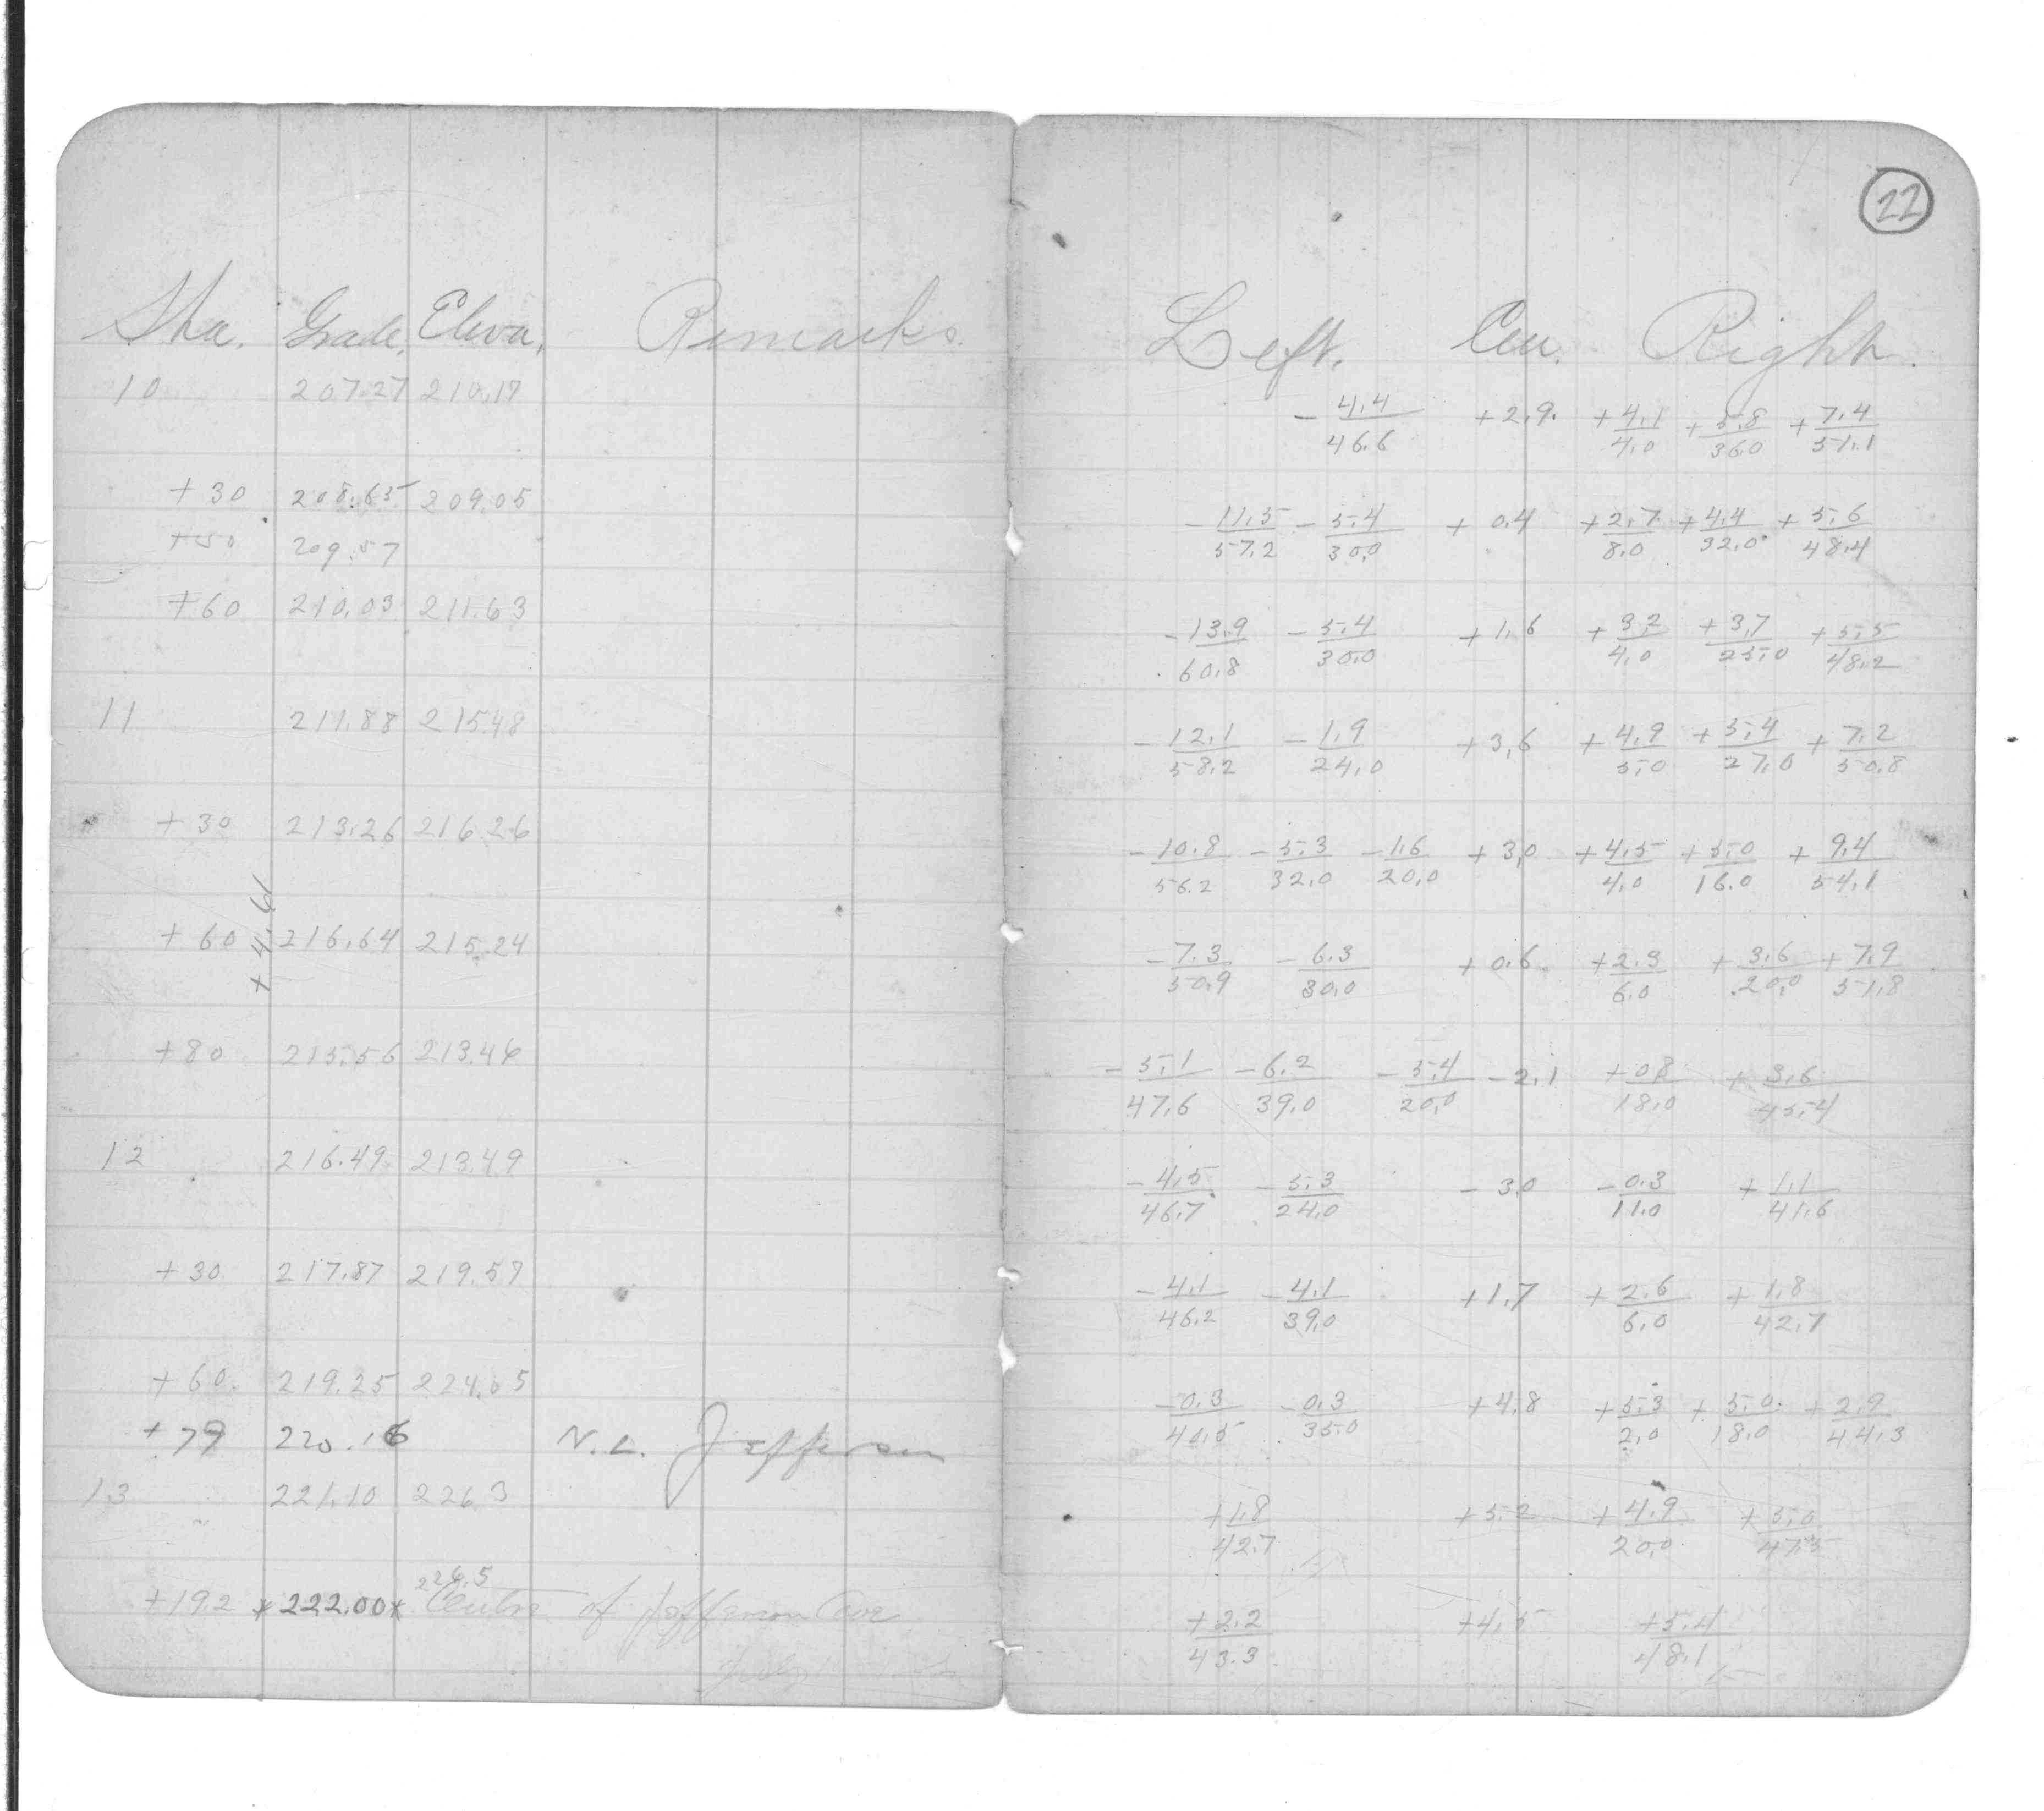 22
Sta. Grade. Eleva. Remarks. Left. Cen. Right.
10 207.27 210.17 - 4.4/46.6 + 2.9. + 4.1/4.0 + 5.8/36.0 + 7.4/51.1
+ 30 208.65 209.05 - 11.5/57.2 - 5.4/30.0 + 0.4 + 2.7/8.0 + 4.4/32.0 + 5.6/48.4
+50 209.57
+60 210.03 211.63 - 13.9/60.8 - 5.4/30.0 + 1.6 + 3.2/4.0 + 3.7/25.0 + 5.5/48.2
11 211.88 215.48 - 12.1/58.2 - 1.9/24.0 + 3.6 + 4.9/5.0 + 5.4/27.0 + 7.2/50.8
+ 30 213.26 216.26 - 10.8/56.2 - 5.3/32.0 - 1.6/20.0 + 3.0 + 4.5/4.0 + 5.0/16.0 + 9.4/54.1
+ 4.61
+ 60 216.64 215.24 - 7.3/50.9 - 6.3/30.0 + 0.6 + 2.3/6.0 + 3.6/20.0 + 7.9/51.8
+80 215.56 213.46 - 5.1/47.6 - 6.2/39.0 - 5.4/20.0 - 2.1 + 0.8/18.0 + 3.6/45.4
12 216.49 213.49 - 4.5/46.7 - 5.3/24.0 - 3.0 - 0.3/11.0 + 1.1/41.6
+ 30 217.87 219.57 - 4.1/46.2 - 4.1/39.0 + 1.7 + 2.6/6.0 + 1.8/42.7
+ 60. 219.25 224.05 - 0.3/40.5 - 0.3/35.0 + 4.8 + 5.3/2.0 + 5.0/18.0 + 2.9/44.3
+ 79 220.16 N. L. Jefferson
13 221.10 226.3 + 1.8/42.7 + 5.2 + 4.9/20.0 + 5.0/47.5
226.5
+19.2 x 222.00 x Centre of Jefferson Ave + 2.2/43.3 + 4.5 + 5.4/48.1